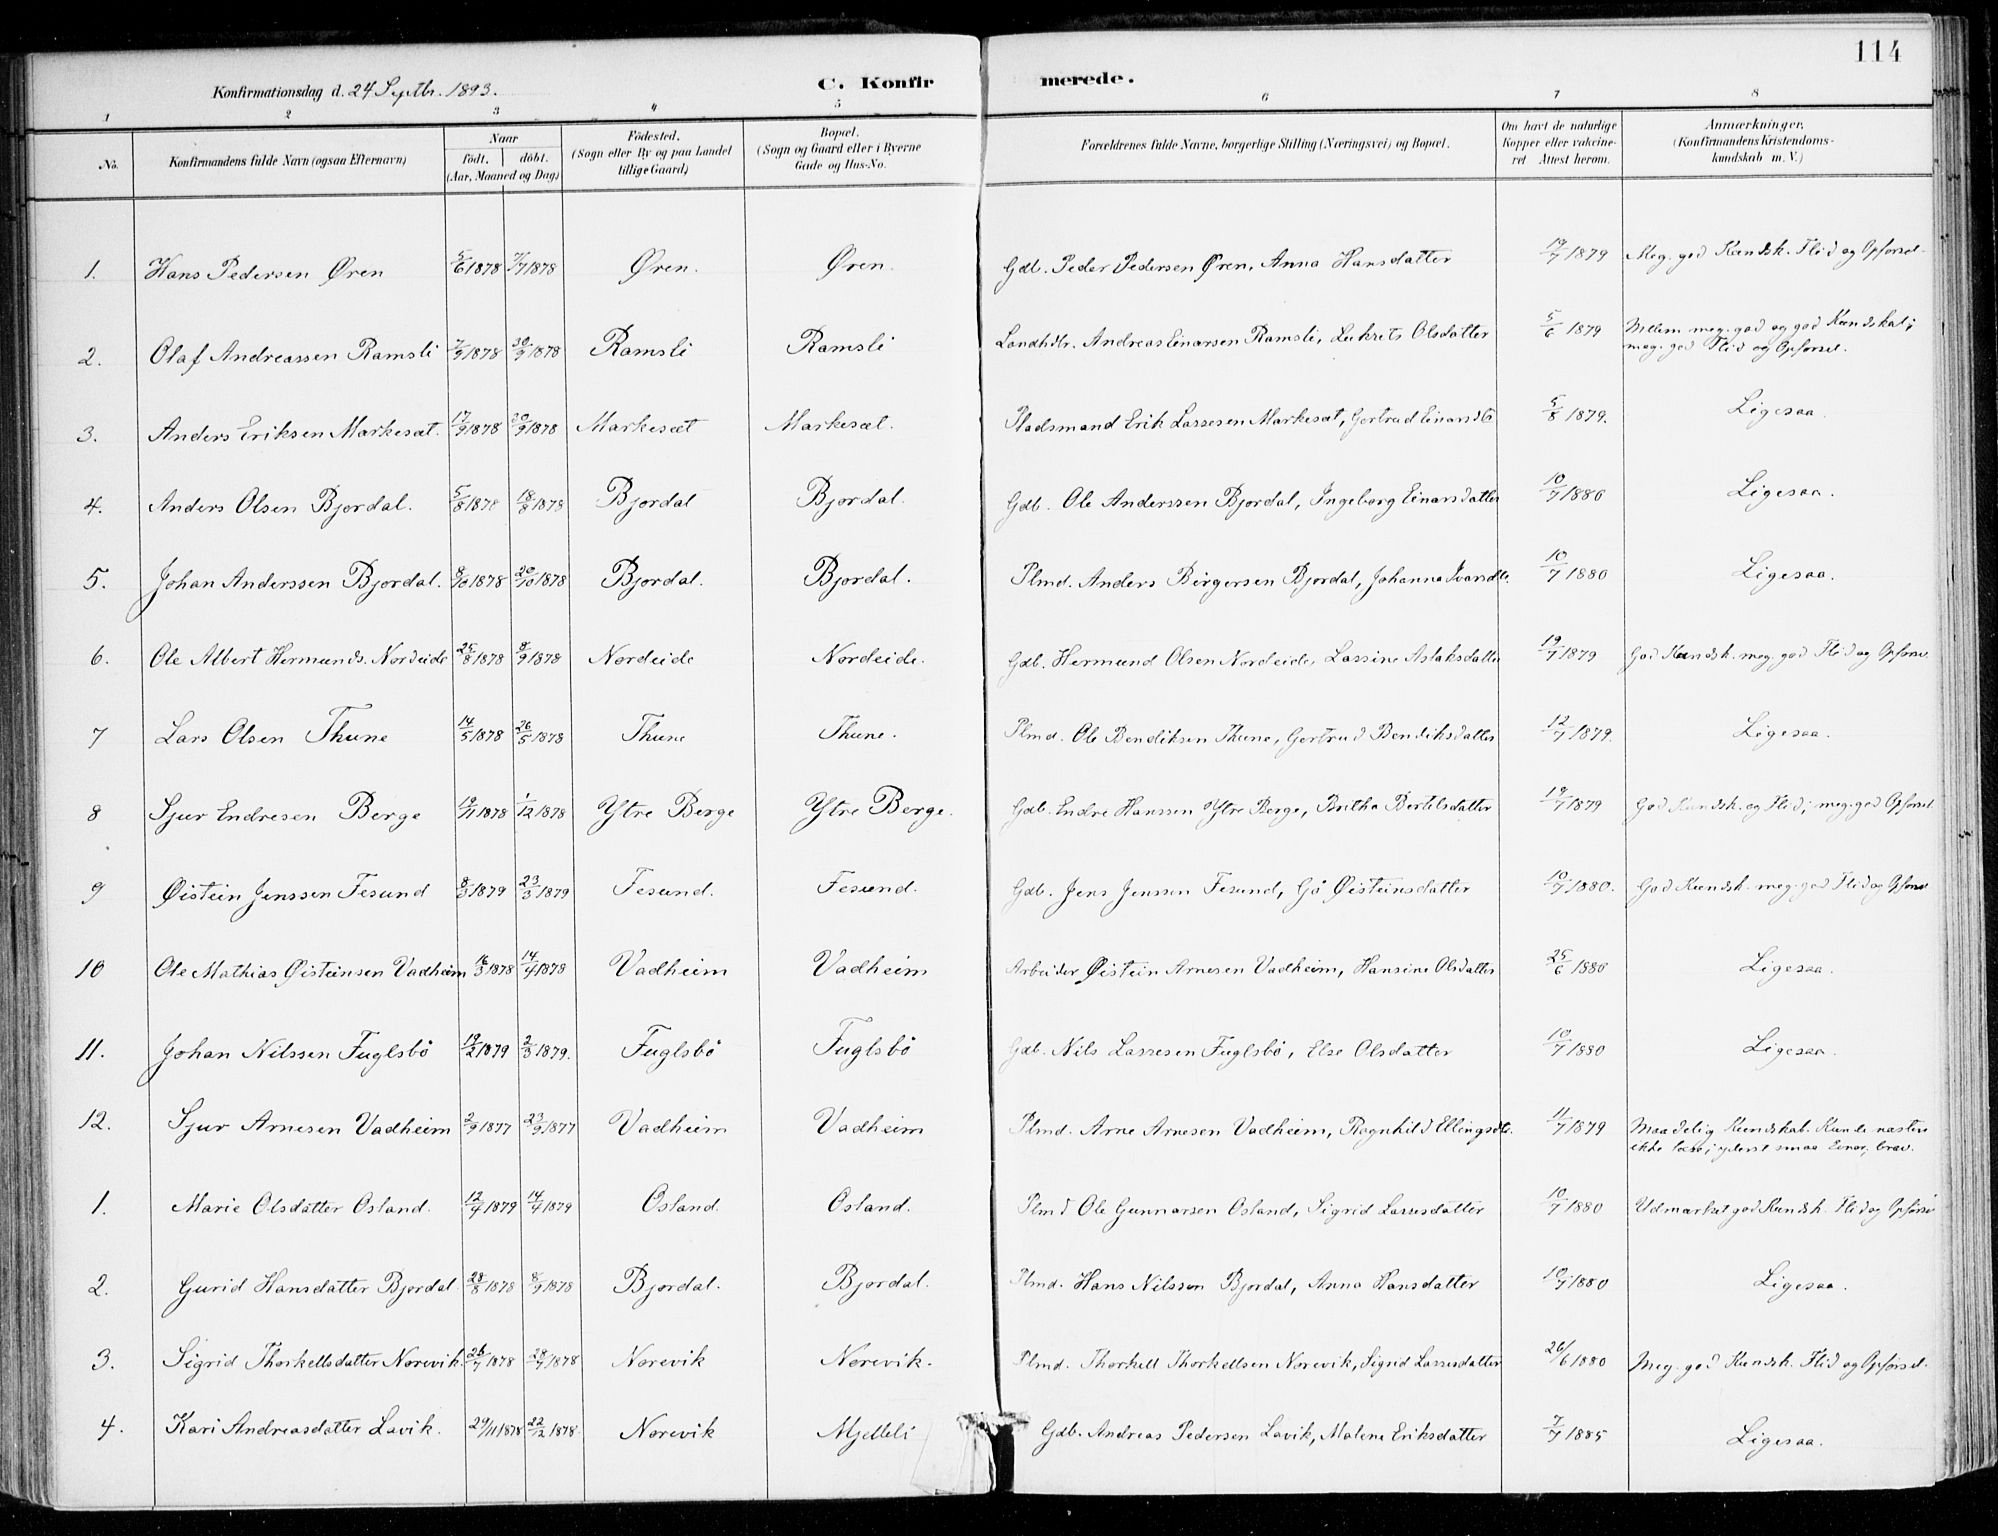 114
Konfirmationsdag d. 24 Septbr. 1893.
C. Konfirmerede.
1 2 3 4 5 6 7 8
No. Konfirmandens fulde Navn (ogsaa Efternavn) Naar födt. döbt. (Aar, Maaned og Dag) Födested. (Sogn eller By og paa Landet tillige Gaard) Bopæl. (Sogn og Gaard eller i Byerne Gade og Hus-No. Forældrenes fulde Navne, borgerlige Stilling (Næringsvei) og Bopæl. Om havt de naturlige Kopper eller vakcineret Attest herom. Anmærkninger. (Konfirmandens Kristendomskundskab m. V.)
1. Hans Pedersen Øren 5/6 1878 7/7 1878 Øren. Øren. Gdb. Peder Pedersen Øren, Anna Hansdatter 19/7 1879 Meg. god Kundsk. Flid og Opførsel.
2. Olaf Andreassen Ramsli 7/9 1878 30/9 1878 Ramsli Ramsli Landhdlr. Andreas Einarsen Ramsli, Lukrets Olsdatter 5/6 1879 Mellem meg. god og god Kundskab;
meg. god Flid og Opførsel.
3. Anders Eriksen Markesæt. 17/9 1878 20/9 1878 Markesæt Markesæt. Pladsmand Erik Lassesen Markesæt, Gertrud Einarsdt 5/8 1879. Ligesaa.
4. Anders Olsen Bjordal. 5/8 1878 18/8 1878 Bjordal Bjordal. Gdb. Ole Anderssen Bjordal, Ingeborg Einarsdatter 10/7 1880 Ligesaa.
5. Johan Anderssen Bjordal. 8/10 1878 20/10 1878 Bjordal. Bjordal. Plmd. Anders Børgersen Bjordal, Johanna Ivarsdtr. 10/7 1880 Ligesaa.
6. Ole Albert Hermunds. Nordeide 25/8 1878 8/9 1878 Nordeide Nordeide. Gdb. Hermund Olsen Nordeide, Lassine Aslaksdatter 19/7 1879 God Kundsk. meg. god Flid og Opførsel.
7 Lars Olsen Thune 14/5 1878 26/5 1878 Thune Thune. Plmd. Ole Bendiksen Thune, Gertrud Bendiksdatter 12/7 1879. Ligesaa.
8 Sjur Endresen Berge 19/11 1878 1/12 1878 Ytre Berge Ytre Berge. Gdb. Endre Hanssen Ytre Berge, Britha Bertelsdatter 19/7 1879 God Kundsk. og Flid; meg. god Opførsel
9 Øistein Jenssen Fesund 8/3 1879 23/3 1879 Fesund. Fesund. Gdb. Jens Jenssen Fesund, Gjø Øisteinsdatter 10/7 1880. God Kundsk. meg. god Flid og Opførsel
10 Ole Mathias Øisteinsen Vadheim 16/3 1878 14/4 1878 Vadheim Vadheim Arbeider Øistein Arnesen Vadheim, Hansine Olsdatter 25/6 1880 Ligesaa.
11. Johan Nilssen Fuglsbö 19/2 1879 2/3 1879. Fuglsbö Fuglsbö Gdb. Nils Lassesen Fuglsbö, Else Olsdatter 10/7 1880 Ligesaa.
12. Sjur Arnesen Vadheim 2/9 1877 23/9 1877 Vadheim Vadheim Plmd. Arne Arnesen Vadheim, Ragnhild Ellingsdtr. 11/7 1879 Maadelig Kundskab. Kunde næsten
ikke læse; yderst smaa Evner; brav.
1. Marie Olsdatter Osland. 12/4 1879 14/4 1879 Osland. Osland. Plmd Ole Gunnarsen Osland, Sigrid Lassesdatter 10/7 1880 Udmærket god Kundsk. Flid og Opførsel
2. Gurid Hansdatter Bjordal. 28/8 1878 8/9 1878 Bjordal. Bjordal. Plmd. Hans Nilsson Bjordal, Anna Hansdatter 10/7 1880 Ligesaa.
3. Sigrid Thorkellsdatter Norevik. 26/7 1878 28/7 1878 Norevik Norevik. Plmd. Thorkell Thorkellsen Norevik, Sigrid Lassesdatter 26/6 1880 Meg. god Kundsk. Flid og Opførsel.
4. Kari Andreasdatter Lavik. 29/11 1878 22/12 1878. Norevik Mjelleli Gdb. Andreas Pedersen Lavik, Malene Eriksdatter 7/7 1885 Ligesaa.